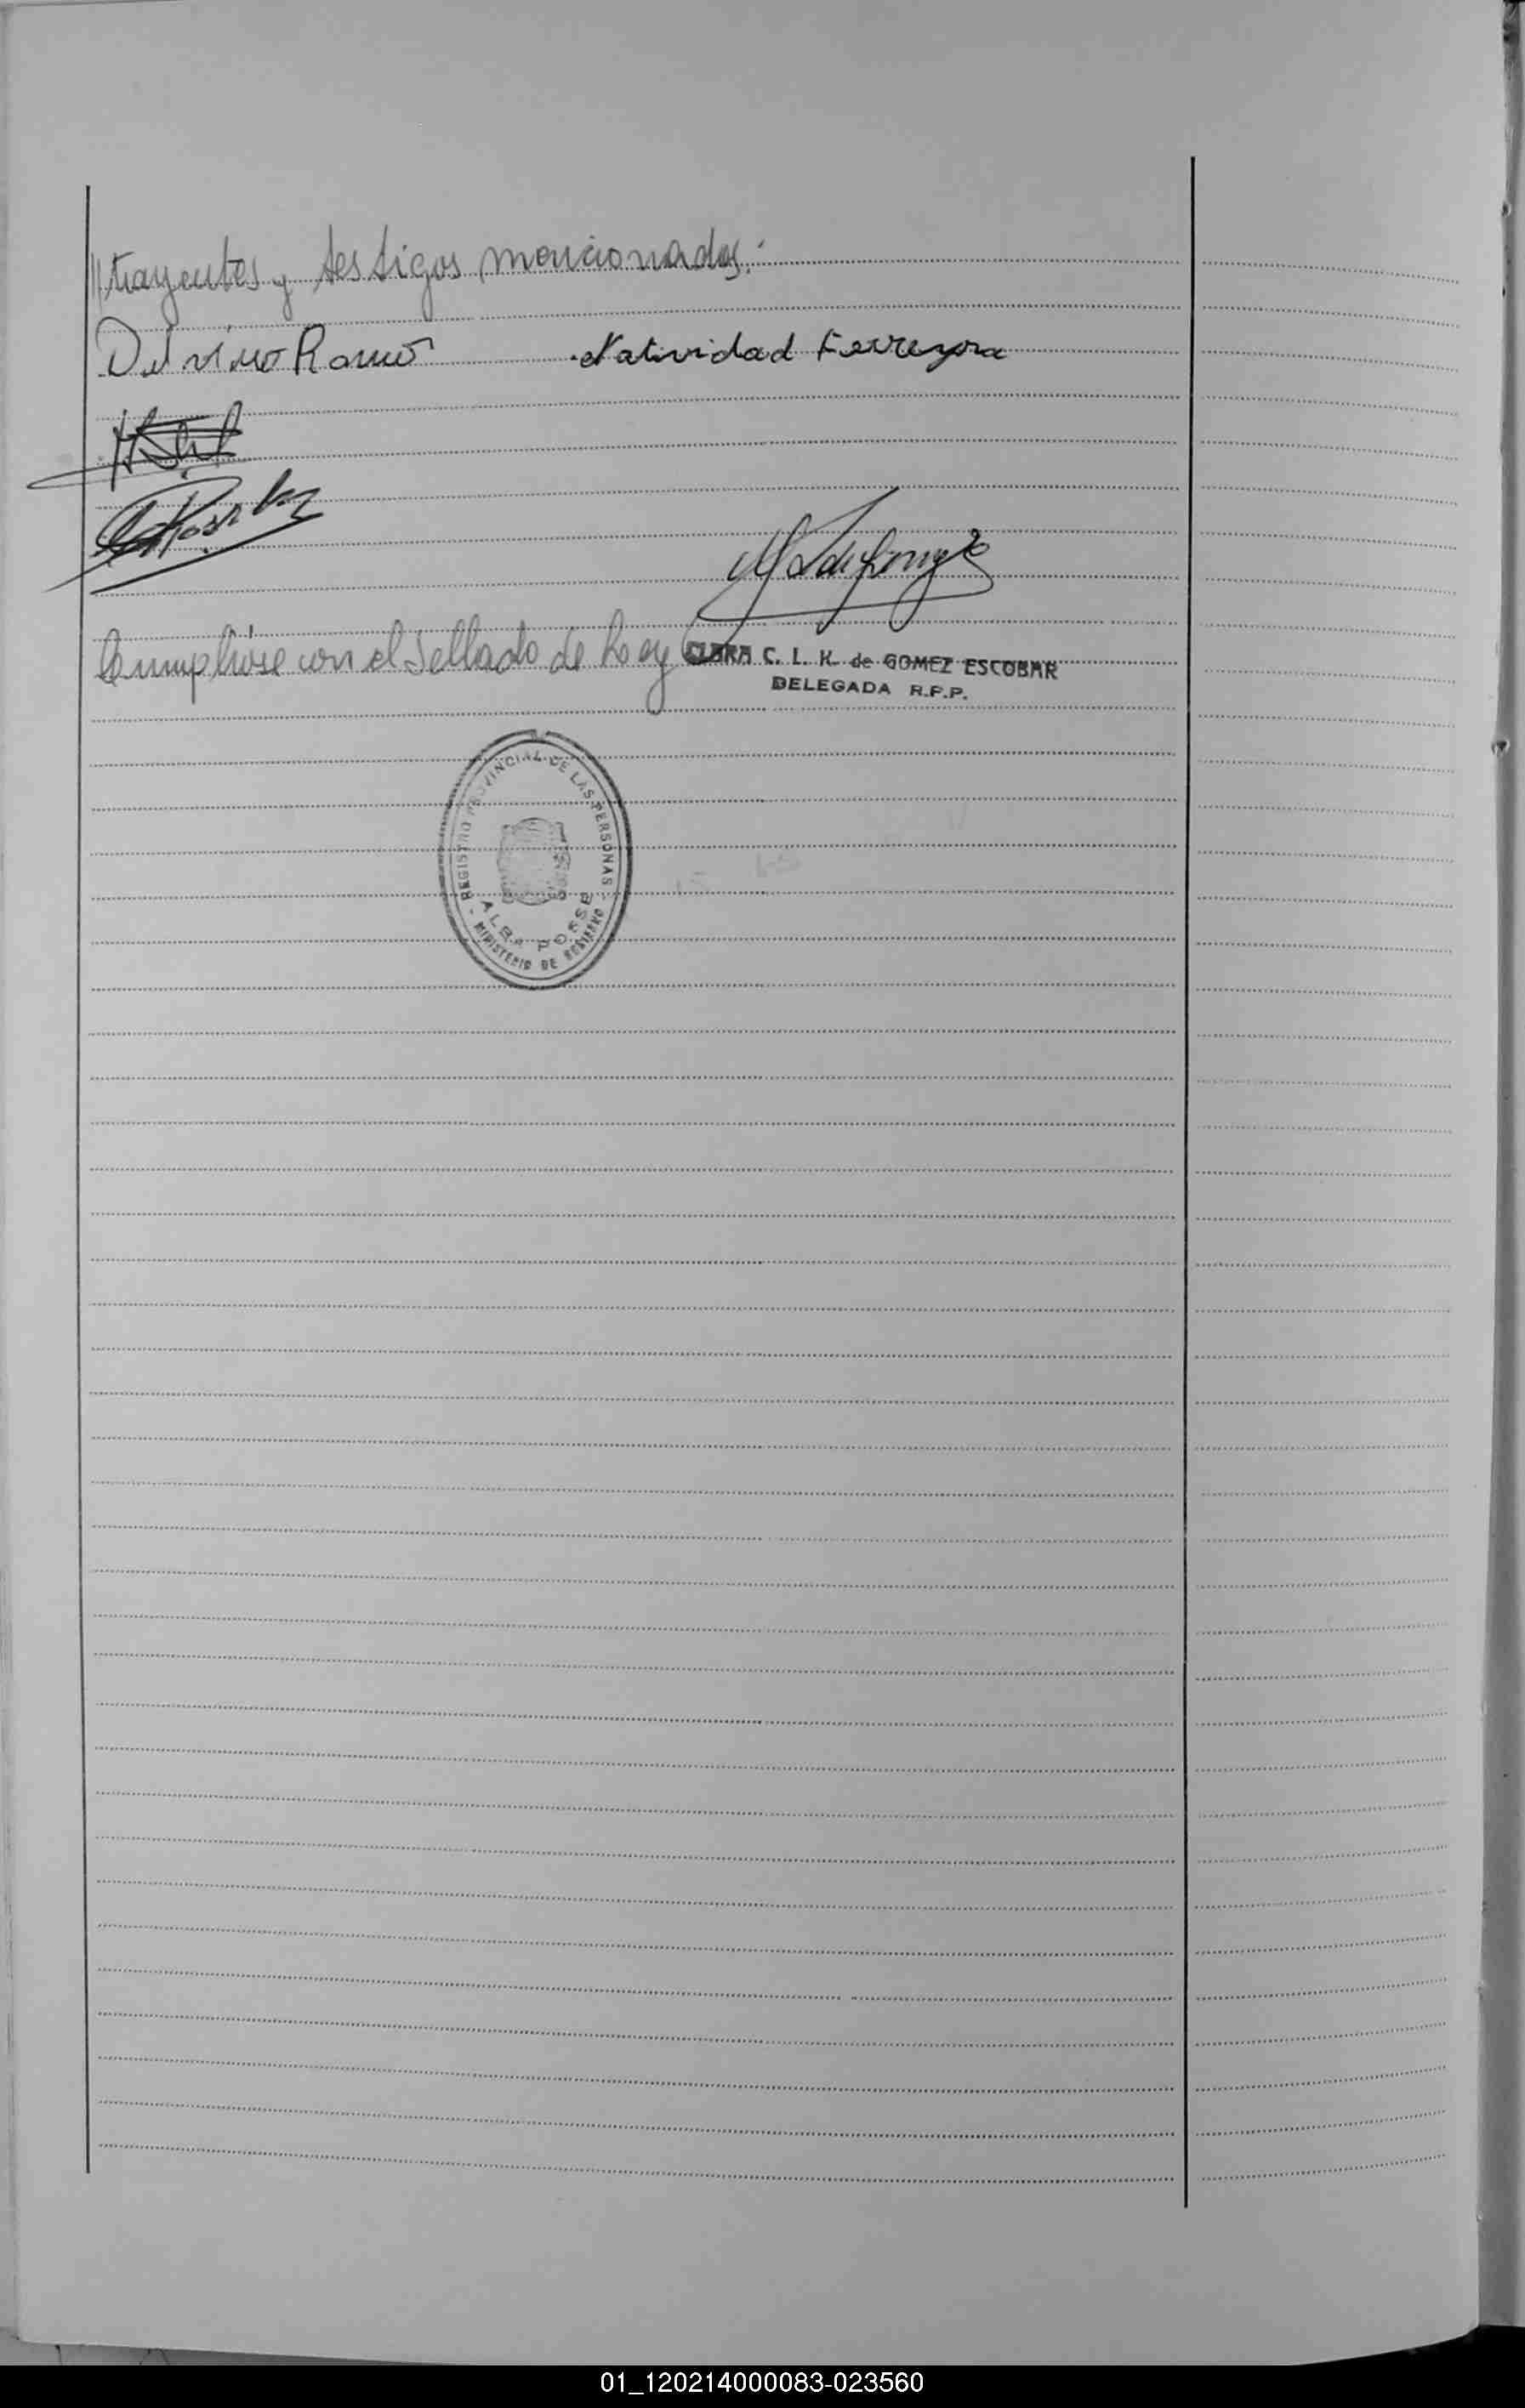 //trayentes y testigos mencionados.-
Delvino Ramo Natividad Ferreyra
Cumplióse con el sellado de Ley
CLARA C. L. K. de GOMEZ ESCOBAR
DELEGADA R.P.P.
REGISTRO PROVINCIAL DE LAS PERSONAS
ALBA POSSE
- MINISTERIO DE GOBIERNO -
01_120214000083-023560